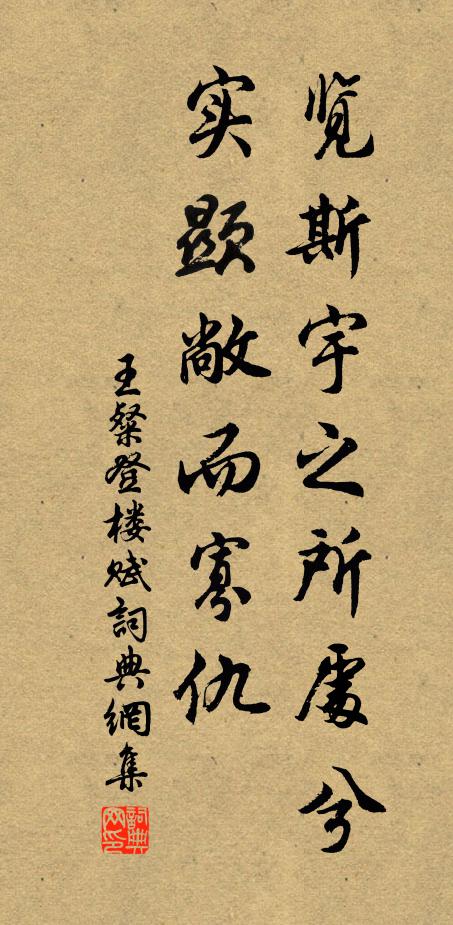 览斯宇之所處兮
实顯敞而寡仇
王粲登楼赋詞典網集
詞典网印